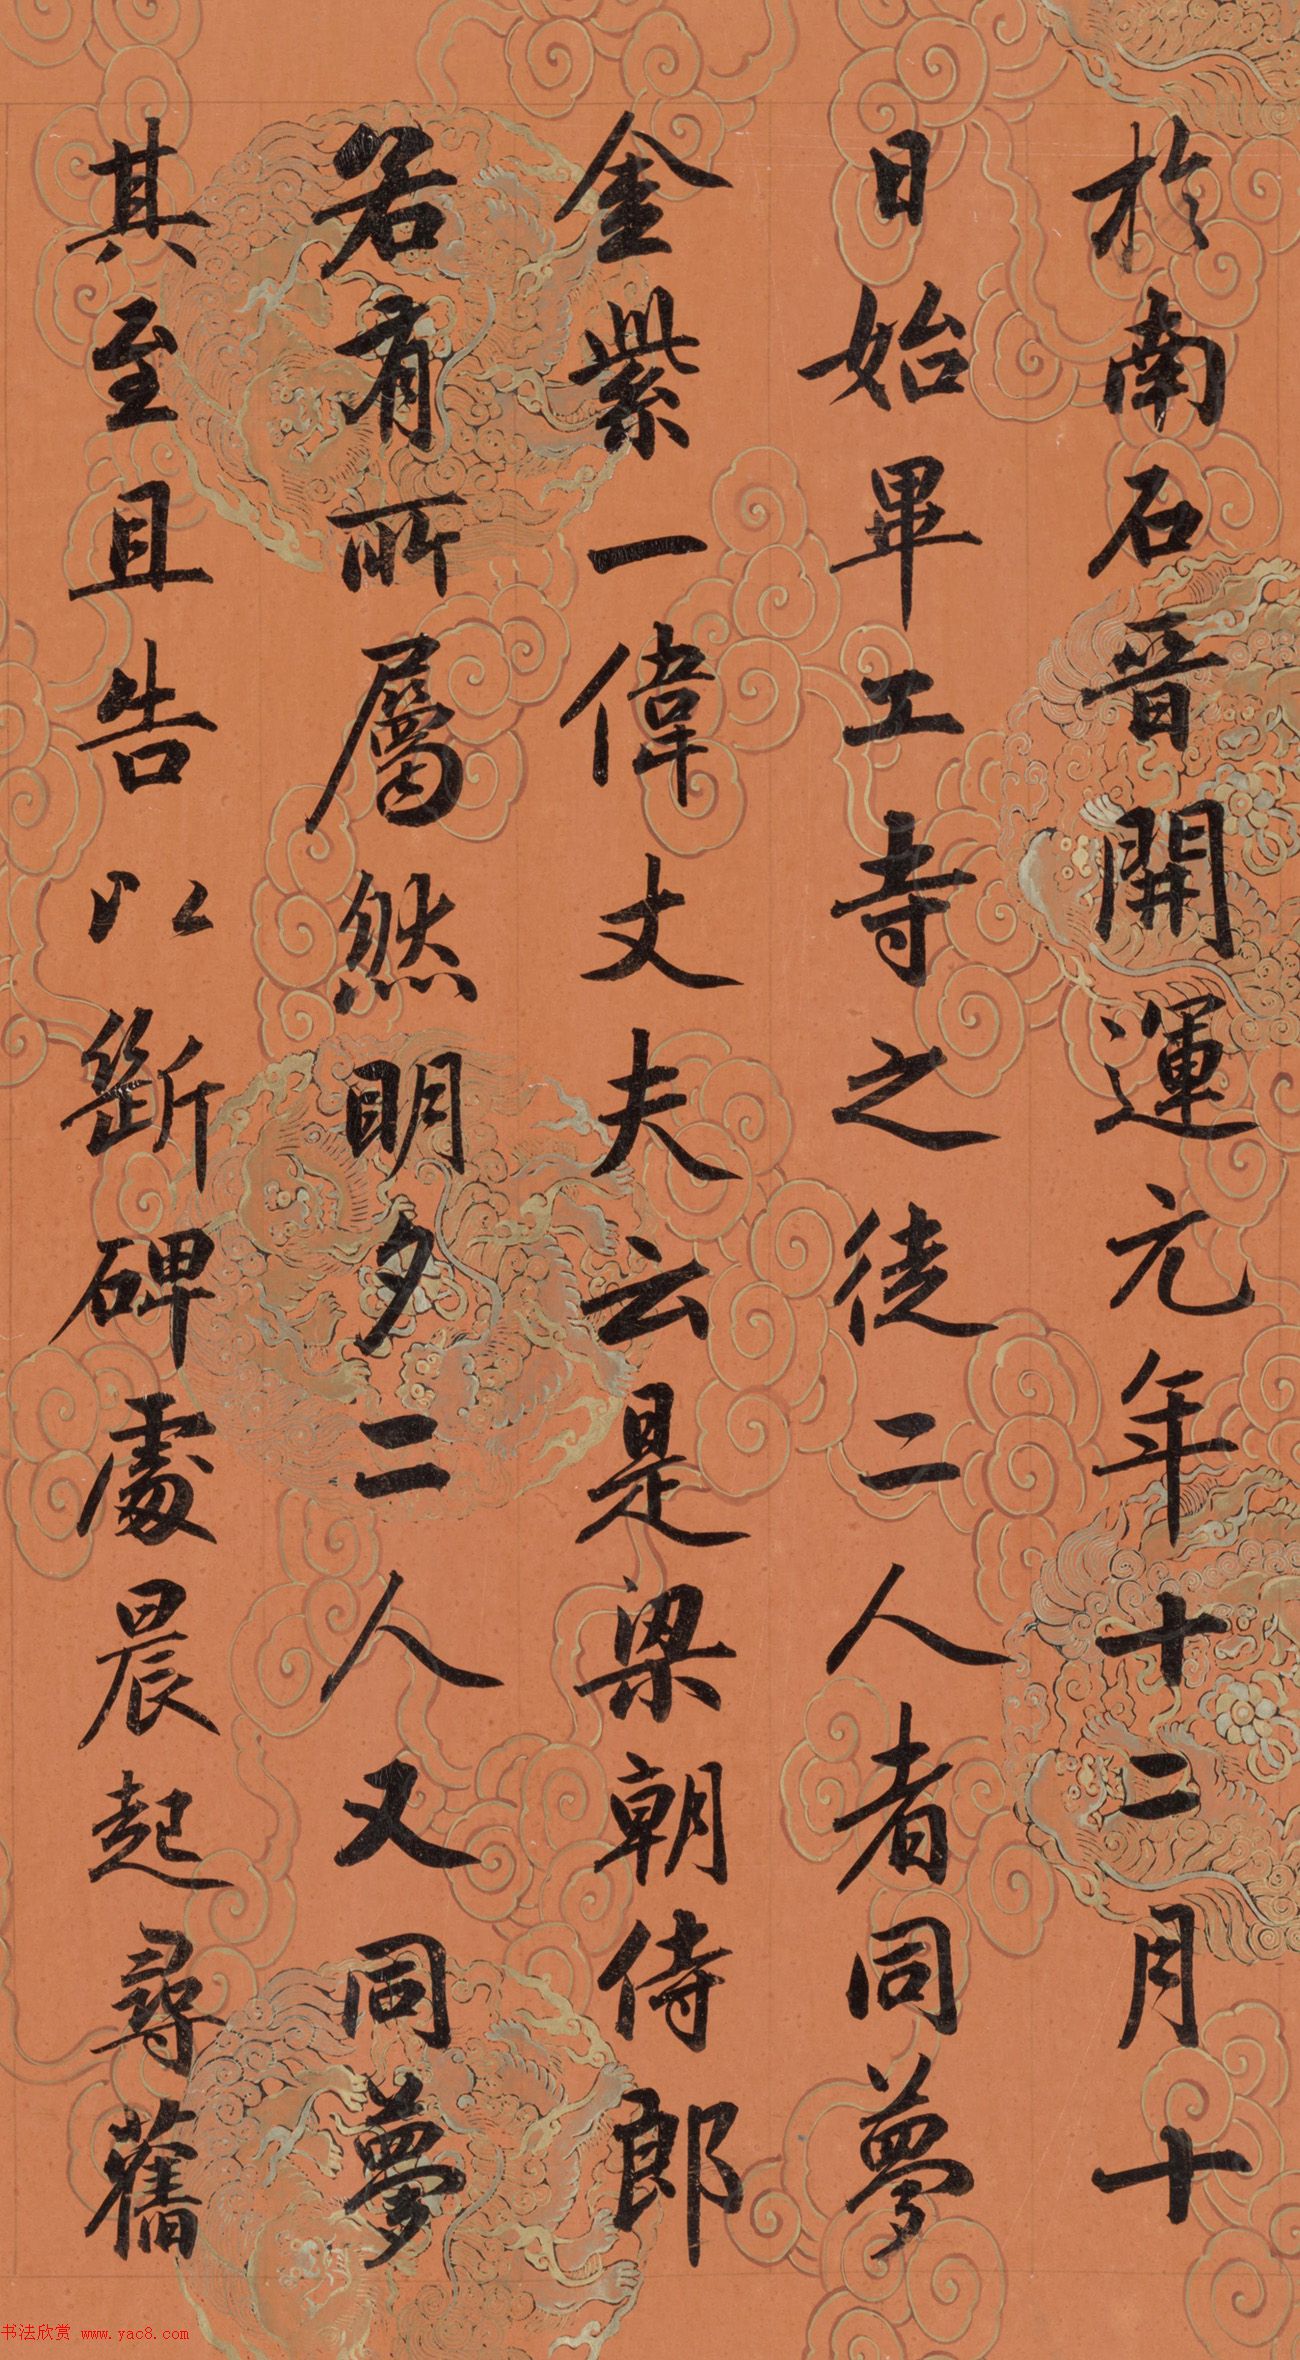 於南石晉開運元年十二月十
日始畢工寺之徒二人者同夢
金紫一偉丈夫云是梁朝侍郎
若有所屬然明夕二人又同夢
其至且告以斷碑處晨起尋舊
书法欣赏 www.yac8.com